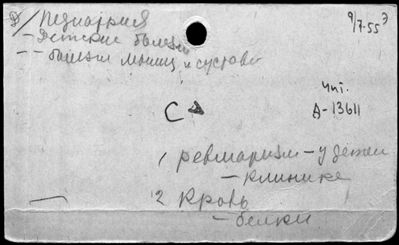 Д/Педиатрия
9/7-55 Э
- Детские болезни
-- болезни мышц и суставов
чит.
А-13611
С
1 ревматизм - у детей
- клинике
2 Кровь
- белки